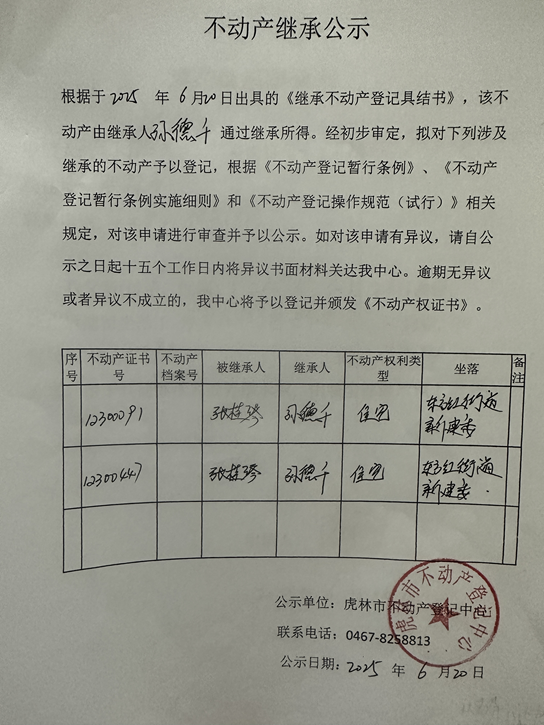 不动产继承公示
根据于2025 年 6月20日出具的《继承不动产登记具结书》，该不
动产由继承人孙德千 通过继承所得。经初步审定，拟对下列涉及
继承的不动产予以登记，根据《不动产登记暂行条例》、《不动产
登记暂行条例实施细则》和《不动产登记操作规范（试行）》相关
规定，对该申请进行审查并予以公示。如对该申请有异议，请自公
示之日起十五个工作日内将异议书面材料关达我中心。逾期无异议
或者异议不成立的，我中心将予以登记并颁发《不动产权证书》。
序号 不动产证书号 不动产档案号 被继承人 继承人 不动产权利类型 坐落 备注
12300091 张桂琴 孙德千 住宅 东方红街道新建委
12300447 张桂琴 孙德千 住宅 东方红街道新建委
公示单位：虎林市不动产登记中心
联系电话：0467-8258813
公示日期：2025 年 6 月20日
虎林市不动产登记中心